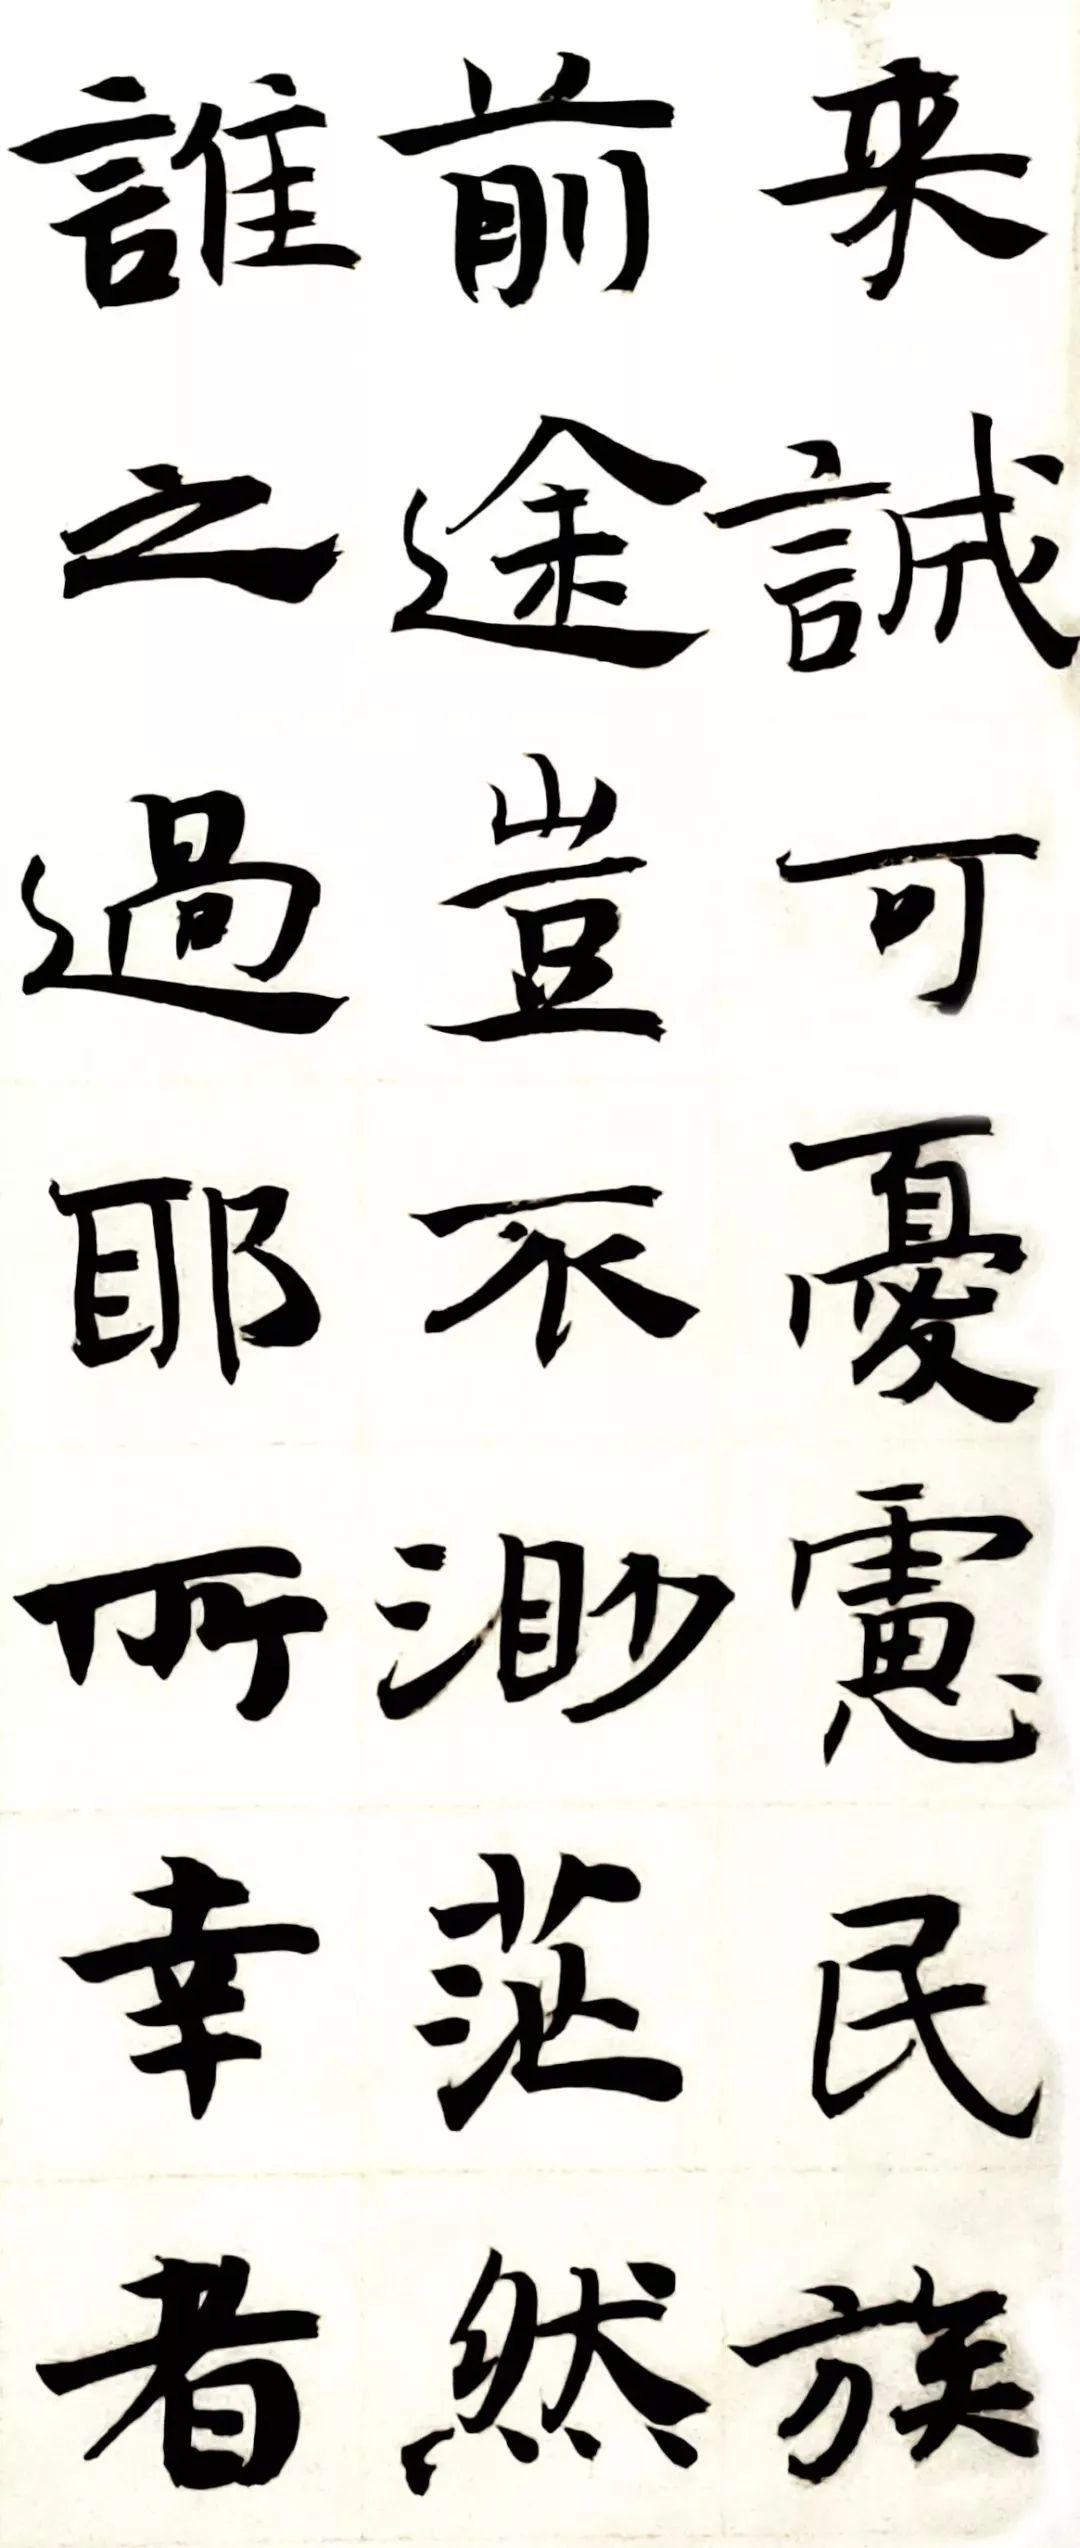 来誠可憂慮民族
前途豈不渺茫然
誰之過耶所幸者